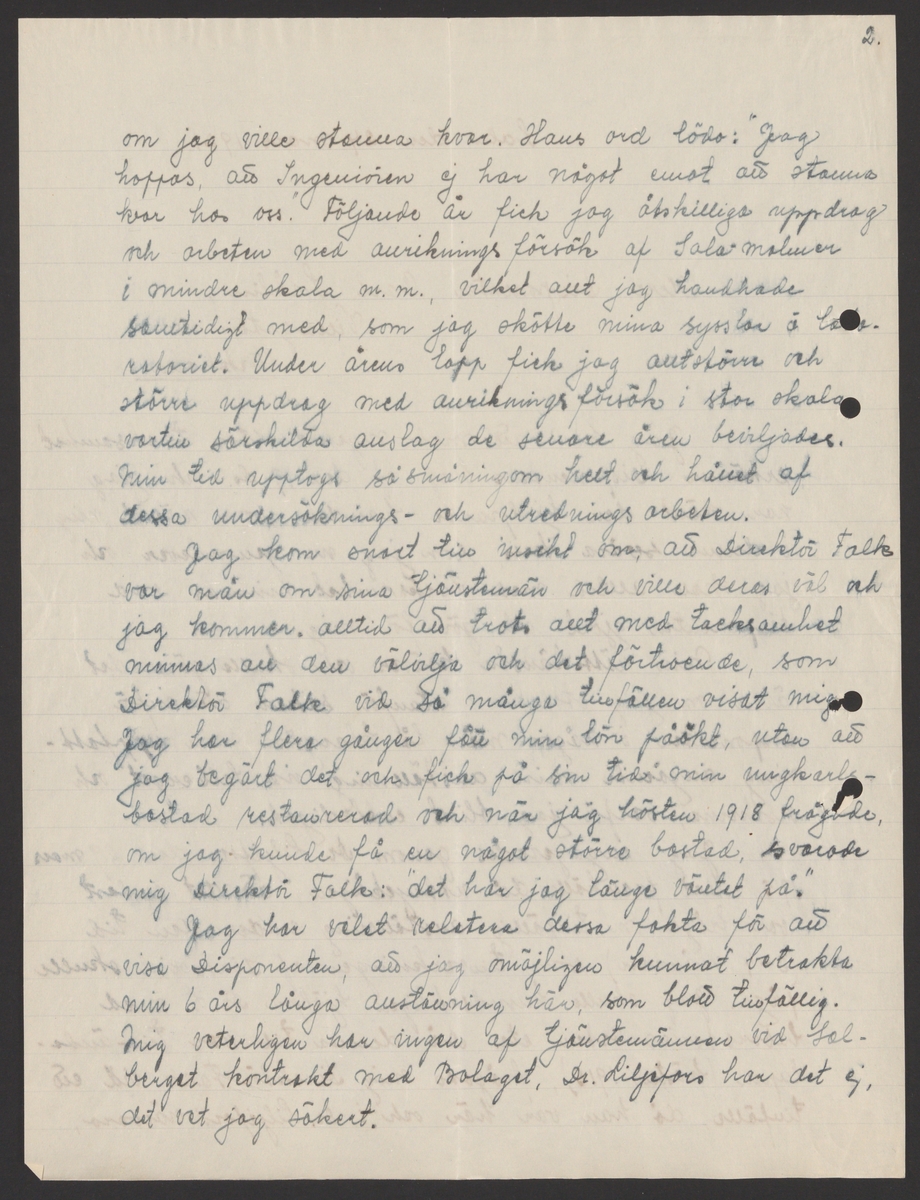 2.
om jag ville stanna kvar. Hans ord lödo: "Jag
hoppas, att Ingeniören ej har något emot att stanna
kvar hos oss." Följande år fick jag åtskilliga uppdrag
och arbeten med anriknings försök af Sala-malmer
i mindre skala m. m., vilket allt jag handhade
samtidigt med, som jag skötte mina sysslor å labo-
ratoriet. Under årens lopp fick jag alltstörre och
större uppdrag med anriknings försök i stor skala
vartill särskilda anslag de senare åren beviljades.
Min tid upptogs så småningom helt och hållet af
dessa undersöknings- och utrednings arbeten.
Jag kom snart till insikt om, att Direktör Falk
var mån om sina tjänstemän och ville deras väl och
jag kommer alltid att trots allt med tacksamhet
minnas all den välvilja och det förtroende, som
Direktör Falk vid så många tillfällen visat mig.
Jag har flera gånger fått min lön påökt, utan att
jag begärt det och fick på sin tid min ungkarls-
bostad restaurerad och när jag hösten 1918 frågade,
om jag kunde få en något större bostad, svarade
mig Direktör Falk: "det har jag länge väntat på."
Jag har velat relatera dessa fakta för att
visa Disponenten, att jag omöjligen kunnat betrakta
min 6 års långa anställning här, som blott tillfällig.
Mig veterligen har ingen af tjänstemännen vid Sal-
berget kontrakt med Bolaget, Dr. Liljefors har det ej,
det vet jag säkert.